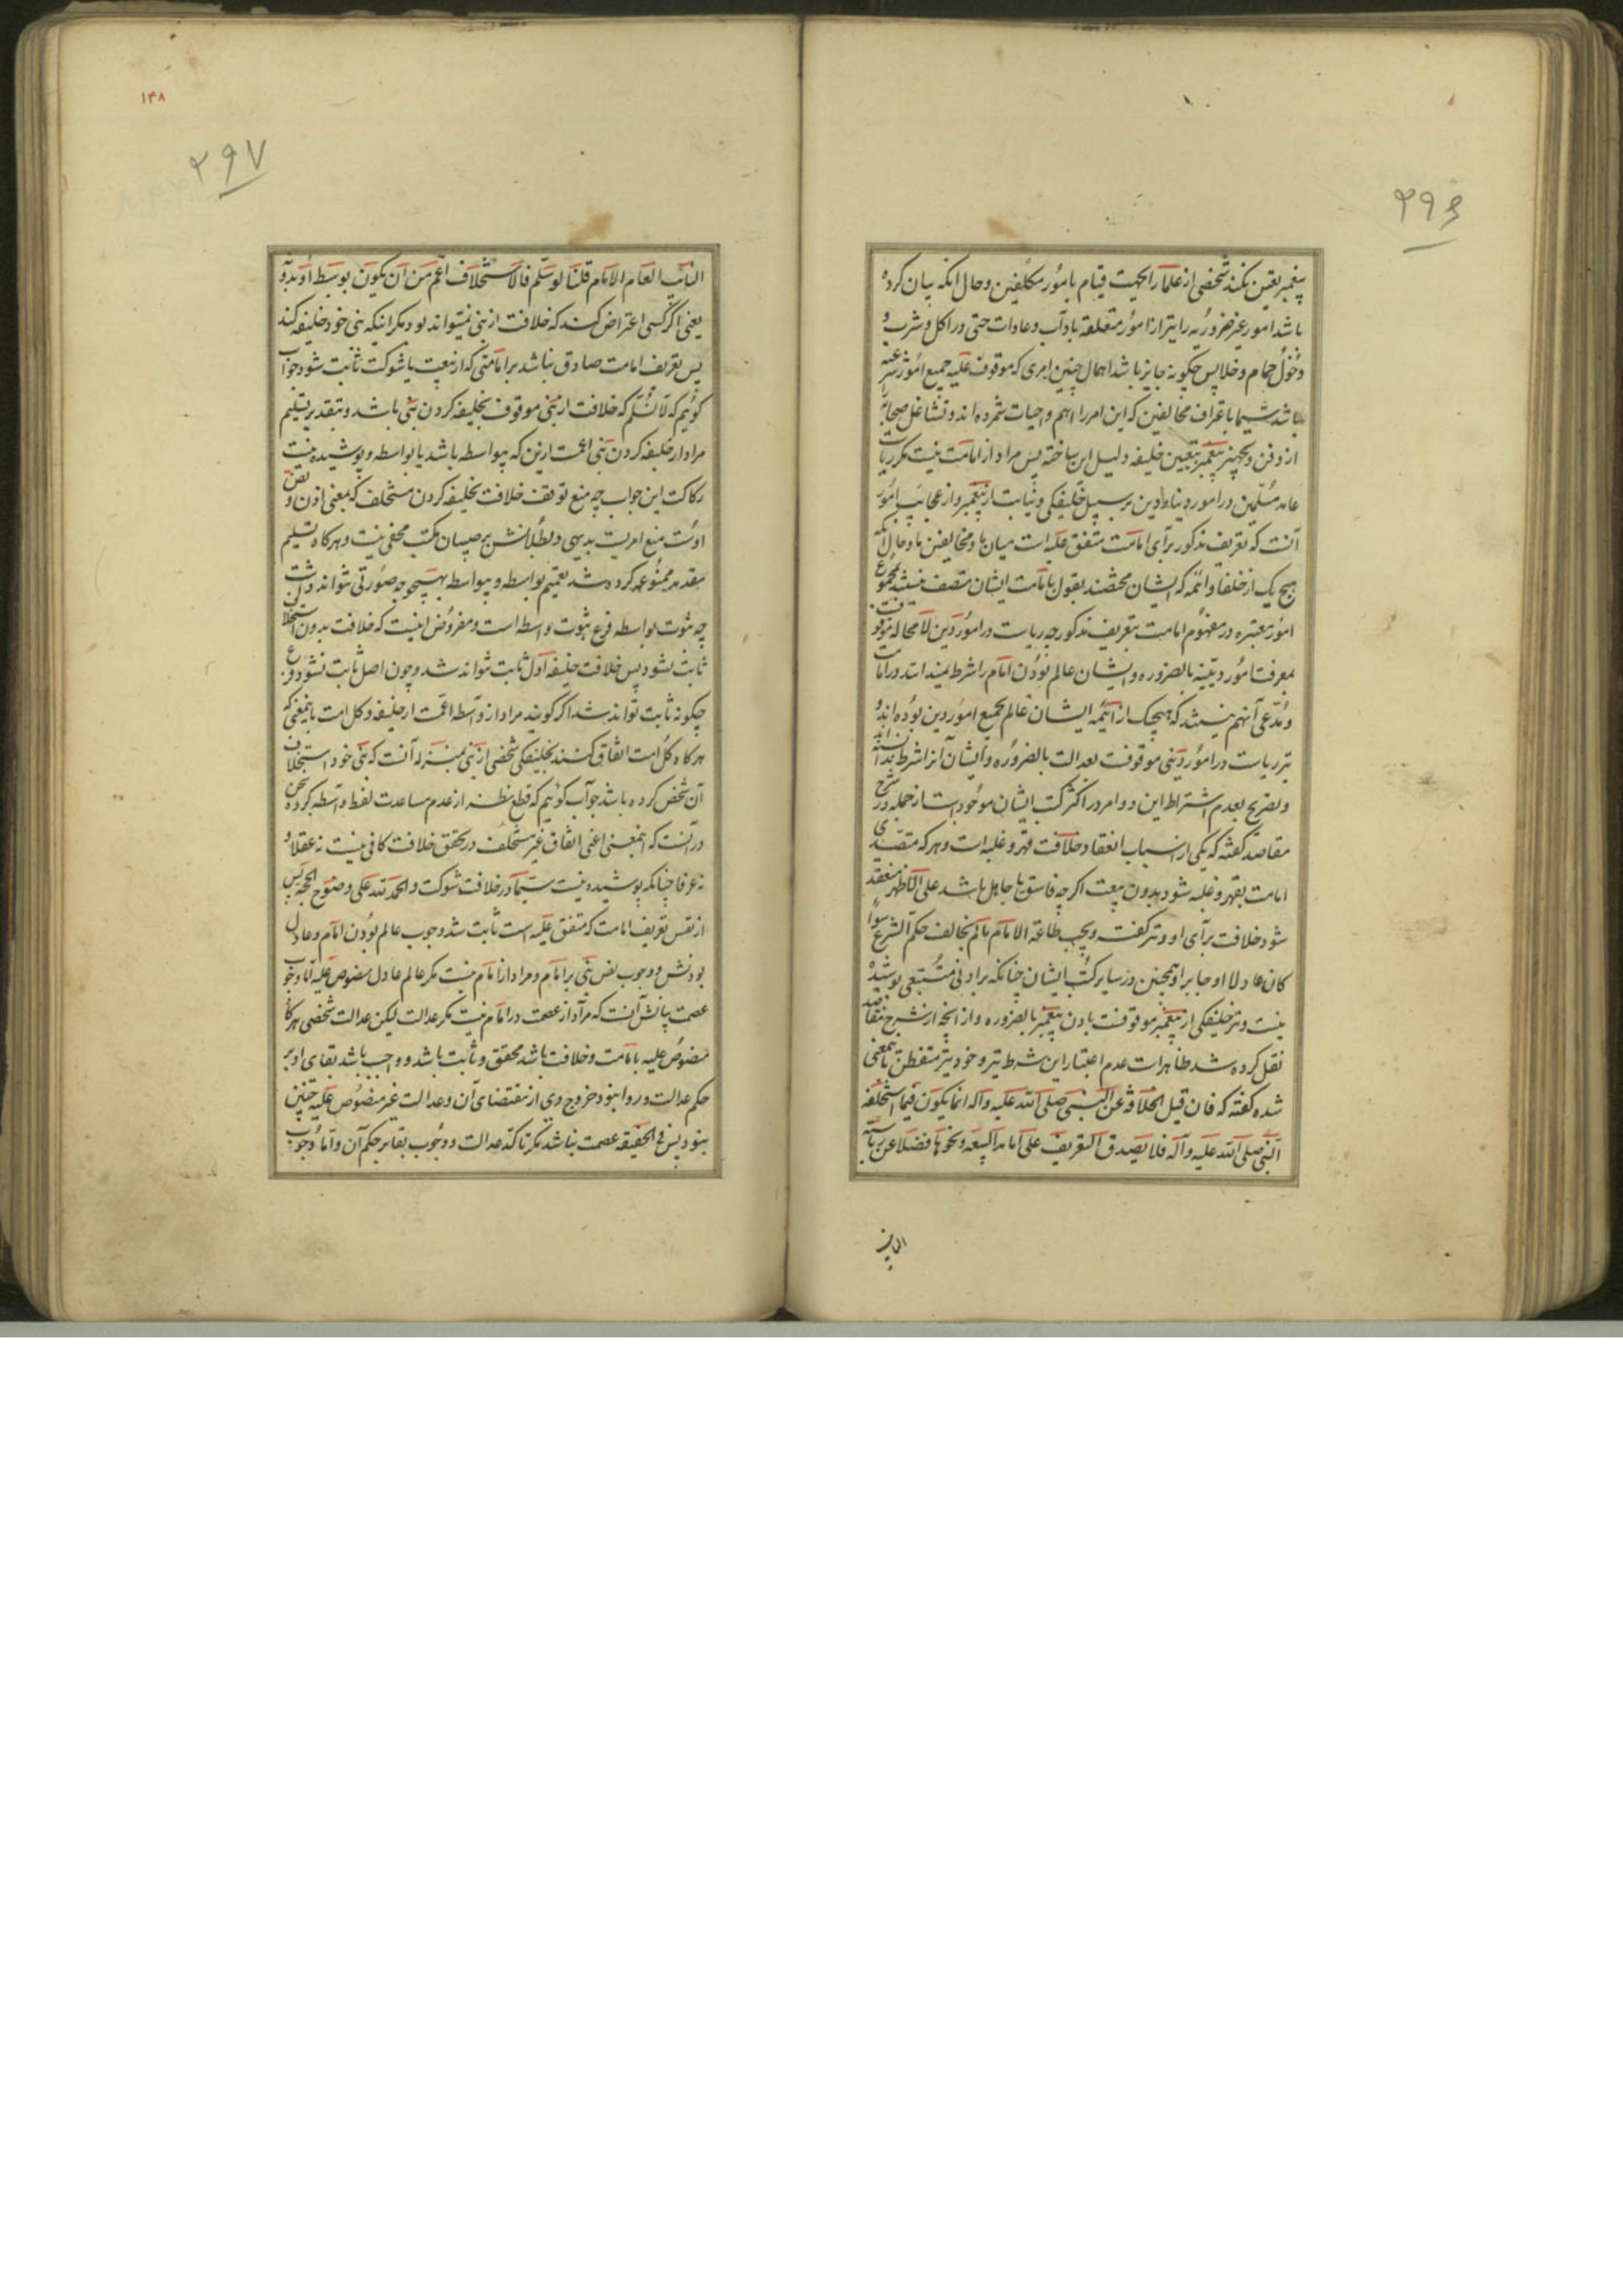 ۲۹۶
پیغمبر تعیین نکند شخصی از علما را بجهت قیام بامور مکلفین و حال آنکه بیان کرده
باشد امور غیر ضروریه را نیز از امور متعلقه بآداب و عادات حتی در اکل و شرب و
دخول حمام و خلا پس چگونه جایز باشد اهمال چنین امری که موقوف علیه جمیع امور شرعیه
باشد سیما باعتراف مخالفین که این امر را اهم واجبات شمرده‌اند و تشاغل صحابه را
از دفن و تجهیز پیغمبر بتعیین خلیفه دلیل این ساخته پس مراد از امامت نیست مگر ریاست
عامه مسلمین در امور دنیا و دین بر سبیل خلیفگی و نیابت از پیغمبر و از عجایب امور
آنست که تعریف مذکور برای امامت متفق علیه است میان ما و مخالفین ما و حال آنکه
هیچ یک از خلفا و ائمه که ایشان مختصند بقول بامامت ایشان متصف نیستند بمجموع
امور معتبره در مفهوم امامت بتعریف مذکور چه ریاست در امور دین لا محاله موقوفست
بمعرفت امور دینیه بالضروره و ایشان عالم بودن امام را شرط نمیدانند در امامت
و مدعی آنهم نیستند که هیچیک از ائمه ایشان عالم بجمیع امور دین بوده‌اند و
نیز ریاست در امور دینی موقوفست بعدالت بالضروره و ایشان آنرا شرط ندانسته‌اند
و تصریح بعدم اشتراط این دو امر در اکثر کتب ایشان موجود است از جمله در شرح
مقاصد گفته که یکی از اسباب انعقاد خلافت قهر و غلبه است و هر که متصدی
امامت بقهر و غلبه شود بدون بیعت اگر چه فاسق یا جاهل باشد علی الاظهر منعقد
شود خلافت برای او و نیز گفته و یجب طاعة الامام ما لم یخالف حکم الشرع سوا
کان عادلا او جابرا و همچنین در سایر کتب ایشان چنانکه بر ادنی متتبعی پوشیده
نیست و نیز خلیفگی از پیغمبر موقوفست باذن پیغمبر بالضروره و از آنچه از شرح مقاصد
نقل کرده شد ظاهر است عدم اعتبار این شرط نیز و خود نیز متفطن باینمعنی
شده گفته که فان قیل الخلافة عن النبی صلی الله علیه و آله انما یکون فیما استخلفه
النبی صلی الله علیه و آله فلا یصدق التعریف علی امامة البیعه و نحوها فضلا عن ریاسة
النایب
۱۴۸
۲۹۷
النایب العام الامام قلنا لو سلم فالاستخلاف اعم من ان یکون بوسط او بدونه
یعنی اگر کسی اعتراض کند که خلافت از نبی نمیتواند بود مگر اینکه نبی خود خلیفه کند
پس تعریف امامت صادق نباشد بر امامتی که از بیعت یا شوکت ثابت شود جواب
گوئیم که لا نسلم که خلافت از نبی موقوف بخلیفه کردن نبی باشد و بتقدیر تسلیم
مراد از خلیفه کردن نبی اعمست ازین که بیواسطه باشد یا بواسطه و پوشیده نیست
رکاکت این جواب چه منع توقف خلافت بخلیفه کردن مستخلف که بمعنی اذن و نص
اوست منع امریست بدیهی و بطلانش بر صبیان مکتب مخفی نیست و هر گاه تسلیم
مقدمه ممنوعه کرده شد تعمیم بواسطه و بیواسطه بهیچوجه صورتی نتواند داشت
چه ثبوت بواسطه فرع ثبوت واسطه است و مفروض اینست که خلافت بدون استخلاف
ثابت نشود پس خلافت خلیفه اول ثابت نتواند شد و چون اصل ثابت نشود فرع
چگونه ثابت تواند شد اگر گویند مراد از واسطه اعمست از خلیفه و کل امت باینمعنی که
هر گاه کل امت اتفاق کنند بخلیفگی شخصی از نبی بمنزله آنست که نبی خود استخلاف
آن شخص کرده باشد جواب گوئیم که قطع نظر از عدم مساعدت لفظ واسطه کرده سخن
در آنست که اینمعنی اعنی اتفاق غیر مستخلف در تحقق خلافت کافی نیست نه عقلا و
نه عرفا چنانکه پوشیده نیست سیما در خلافت شوکت و الحمد لله علی وضوح الحجه پس
از نفس تعریف امامت که متفق علیه است ثابت شد وجوب عالم بودن امام و عادل
بودنش و وجوب نص نبی بر امام و مراد از امام نیست مگر عالم عادل منصوص علیه اما وجوب
عصمت بیانش آنست که مراد از عصمت در امام نیست مگر عدالت لیکن عدالت شخصی هر گاه
منصوص علیه بامامت و خلافت باشد محقق و ثابت باشد و واجب باشد بقای او بر
حکم عدالت و روا نبود خروج وی از مقتضای آن و عدالت غیر منصوص علیه چنین
نبود پس فی الحقیقه عصمت نباشد مگر تاکد عدالت و وجوب بقا بر حکم آن و اما وجوب